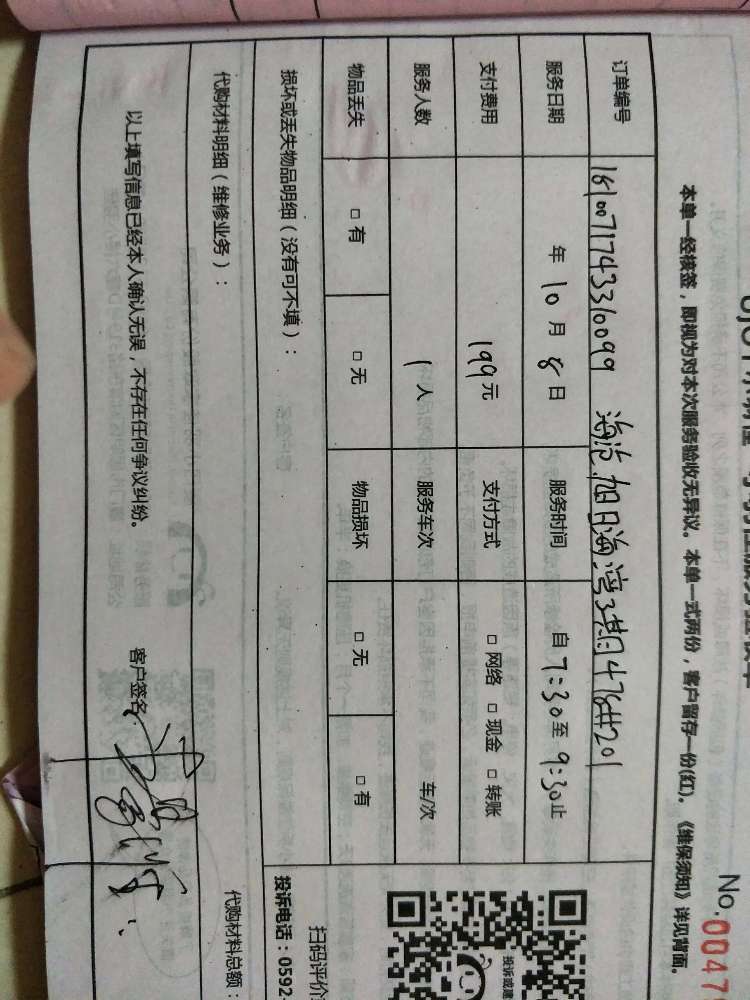 本单一经核签，即视为对本次服务验收无异议。本单一式两份，客户留存一份(红)。《维保须知》详见背面。
No.0047
订单编号 181007174333610099 海沧旭日海湾
服务日期 年 10 月 8 日 服务时间 自 7:30 至 9:30 止
支付费用 199 元 支付方式 □ 网络 □ 现金 □ 转账
服务人数 1 人 服务车次 车/次
物品丢失 □ 有 □ 无 物品损坏 □ 无 □ 有
损坏或丢失物品明细（没有可不填）：
代购材料明细（维修业务）：
代购材料总额：
以上填写信息已经本人确认无误，不存在任何争议纠纷。
客户签名：
扫码评价
投诉电话：0592-